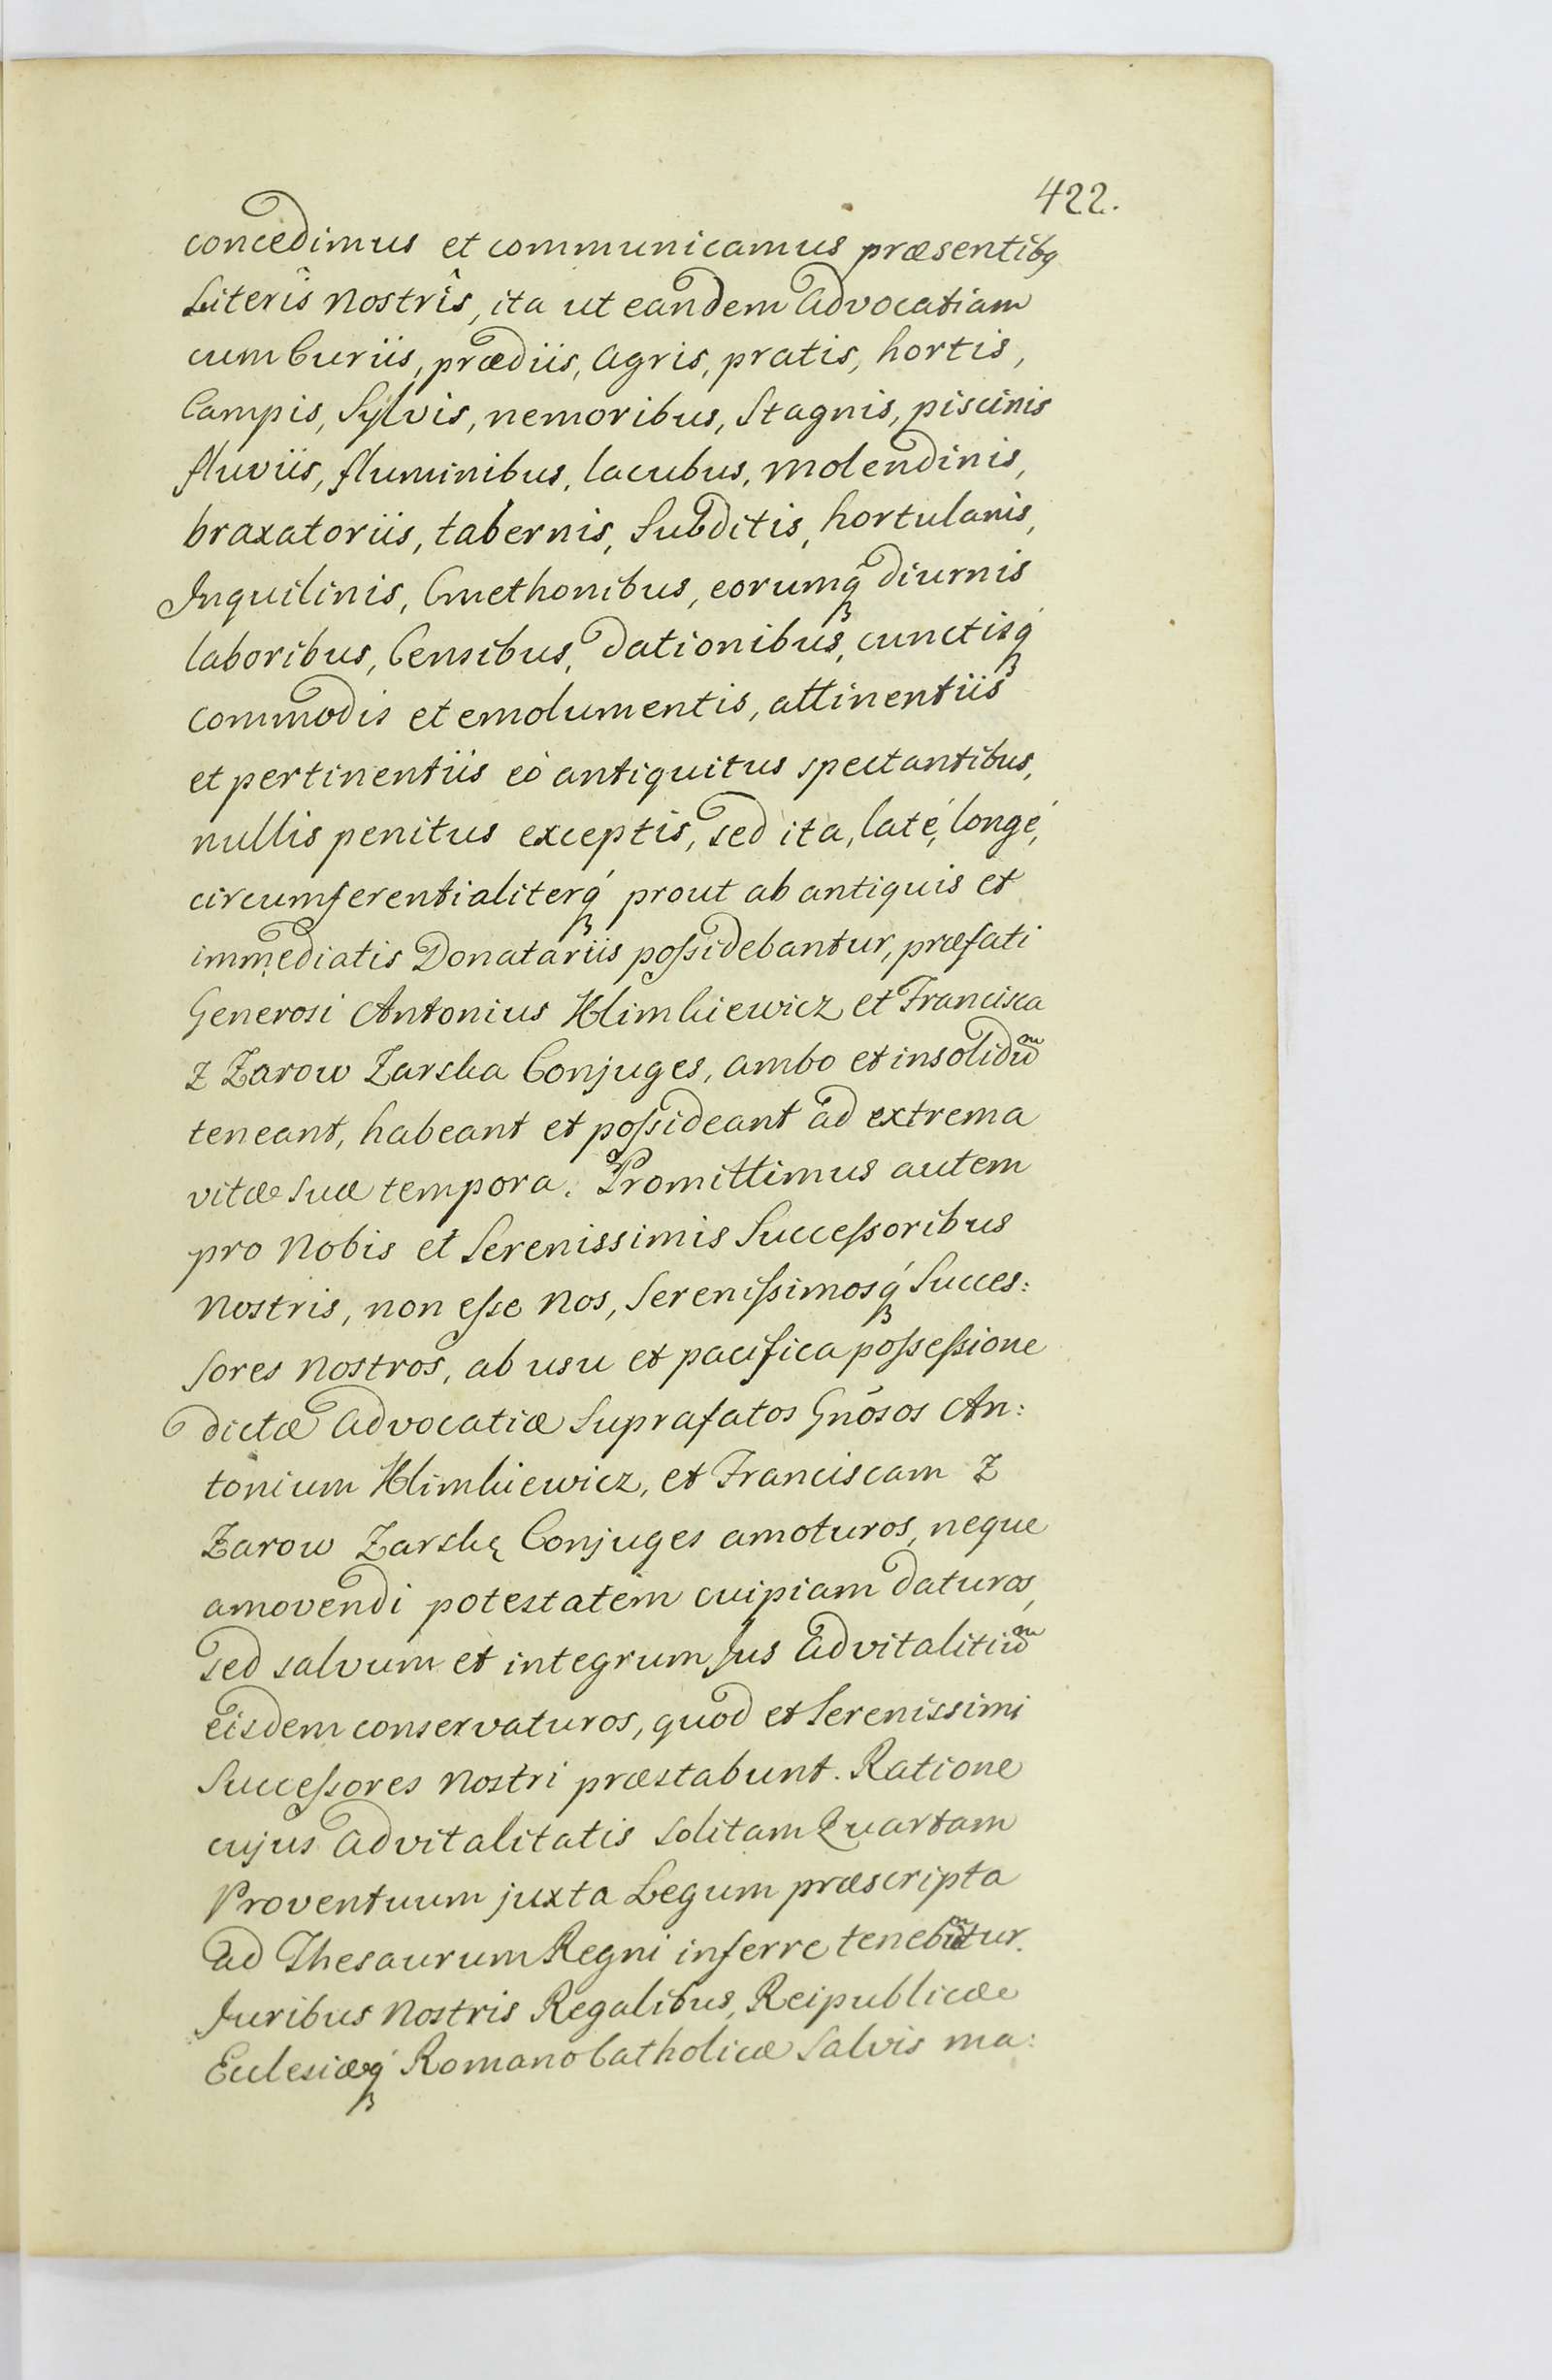 422.
concedimus et communicamus præsentibq
Literîs Nostrîs, ita ut eandem Advocatiam
cum Curiis, prædiis, Agris, pratis, hortis,
Campis, Sylvis, nemoribus, Stagnis, piscinis
fluviis, fluminibus, lacubus, molendinis,
braxatoriis, tabernis, Subditis, hortulanis,
Inquilinis, Cmethonibus, eorumq́ꝫ diurnis
laboribus, Censibus, dationibus, cunctisq́ꝫ
commodis et emolumentis, attinentiis
et pertinentiis eò antiquitus spectantibus,
nullis penitus exceptis, sed ita, laté, longé,
circumferentialiterq́ꝫ prout ab antiquis et
immediatis Donatariis poſsidebantur, præfati
Generosi Antonius Klimkiewicz et Francisca
Z Zarow Zarska Conjuges, ambo et insolidũ
teneant, habeant et poſsideant ad extrema
vitæ suæ tempora. Promittimus autem
pro Nobis et Serenissimis Succeſsoribus
Nostris, non eſse Nos, Sereniſsimosq́ꝫ Succes:
sores Nostros, ab usu et pacifica poſseſsione
dictæ Advocatiæ Suprafatos Gnõsos An:
tonium Klimkiewicz, et Franciscam Z
Zarow Zarskę Conjuges amoturos, neque
amovendi potestatem cuipiam daturos,
sed salvum et integrum Jus Advitalitiũ
eisdem conservaturos, quod et Serenissimi
Succeſsores Nostri præstabunt. Ratione
cujus Advitalitatis solitam Quartam
Proventuum juxta Legum præscripta
ad Thesaurum Regni inferre tenebũtur.
Juribus Nostris Regalibus, Reipublicæ
Eclesiæq́ꝫ Romano Catholicæ Salvis ma: